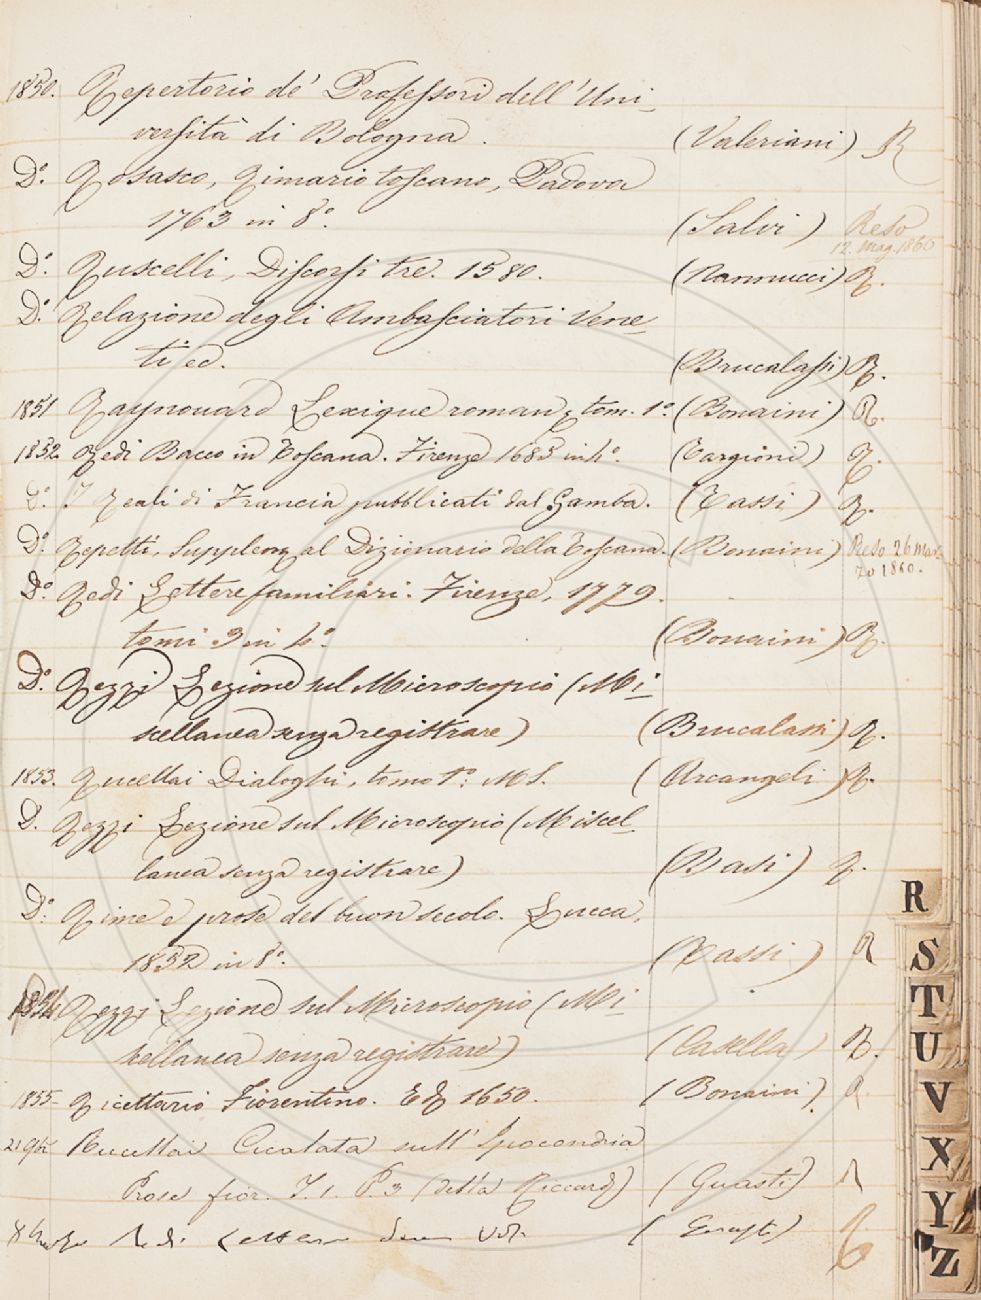 1850. Repertorio de' Professori dell'Uni_
versità di Bologna. (Valeriani) R
Dº. Rosasco, Rimario toscano, Padova
1763 in 8º. (Salvi) Reso
12. Mag. 1860
Dº. Ruscelli, Discorsi tre. 1580. (Nannucci) R.
Dº. Relazione degli Ambasciatori Vene_
ti ec. (Brucalassi) R.
1851 Raynouard Lexique roman, tom. 1º. (Bonaini) R.
1852 Redi Bacco in Toscana. Firenze 1685 in 4º. (Targioni) R.
Dº. Reali di Francia pubblicati dal Gamba. (Tassi) R.
Dº. Repetti, Supplem. al Dizionario della Toscana. (Bonaini) Reso 26 Mar_
zo 1860.
Dº. Redi Lettere familiari. Firenze, 1779.
tomi 3 in 4º. (Bonaini) R.
Dº. Rezzi Lezione sul Microscopio (Mi_
scellanea senza registrare) (Brucalassi) R.
1853. Rucellai Dialoghi, tomo 1º. MS. (Arcangeli) R.
D. Rezzi Lezione sul Microscopio (Miscel_
lanea senza registrare) (Basi) R.
Dº. Rime e prose del buon secolo. Lucca,
1852 in 8º. (Tassi) R
1854 Rezzi Lezione sul Microscopio (Mi_
scellanea senza registrare) (Casella) R.
1855 Ricettario Fiorentino. Ed. 1650. (Bonaini) R
Rucellai Cicalata sull'Ipocondria
Prose fior. T. 1. P. 3 (della Riccard) (Guasti) R
Redi Lettere (Guasti) R
R
S
T
U
V
X
Y
Z